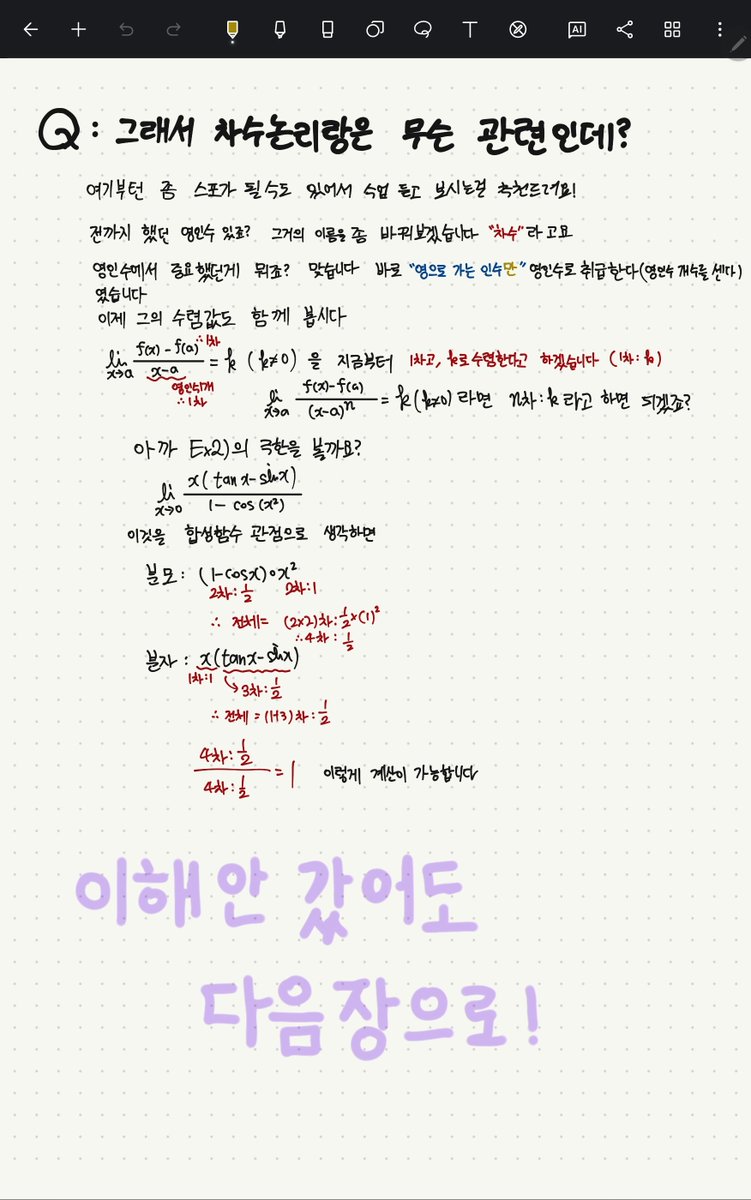 AI
Q: 그래서 차수논리랑은 무슨 관련인데?
여기부턴 좀 스포가 될 수도 있어서 수업 듣고 보시는걸 추천드려요!
전까지 했던 영인수 있죠? 그거의 이름을 좀 바꿔보겠습니다 "차수"라고요
영인수에서 중요했던게 뭐죠? 맞습니다 바로 "영으로 가는 인수만" 영인수로 취급한다(영인수 개수를 센다)
였습니다
이제 그의 수렴값도 함께 봅시다
lim x→a (f(x)-f(a))/(x-a) = k (k≠0) 을 지금부터 1차고, k로 수렴한다고 하겠습니다 (1차: k)
∴1차
영인수1개
∴1차
lim x→a (f(x)-f(a))/(x-a)ⁿ = k (k≠0) 라면 n차: k 라고 하면 되겠죠?
아까 Ex2)의 극한을 볼까요?
lim x→0 x(tanx-sinx)/(1-cos(x²))
이것을 합성함수 관점으로 생각하면
분모: (1-cosx)∘x²
2차: 1/2 2차: 1
∴ 전체= (2×2)차: 1/2×(1)²
∴4차: 1/2
분자: x(tanx-sinx)
1차: 1 ↳3차: 1/2
∴ 전체 = (1+3)차: 1/2
4차: 1/2 / 4차: 1/2 = 1 이렇게 계산이 가능합니다
이해 안 갔어도
다음장으로!